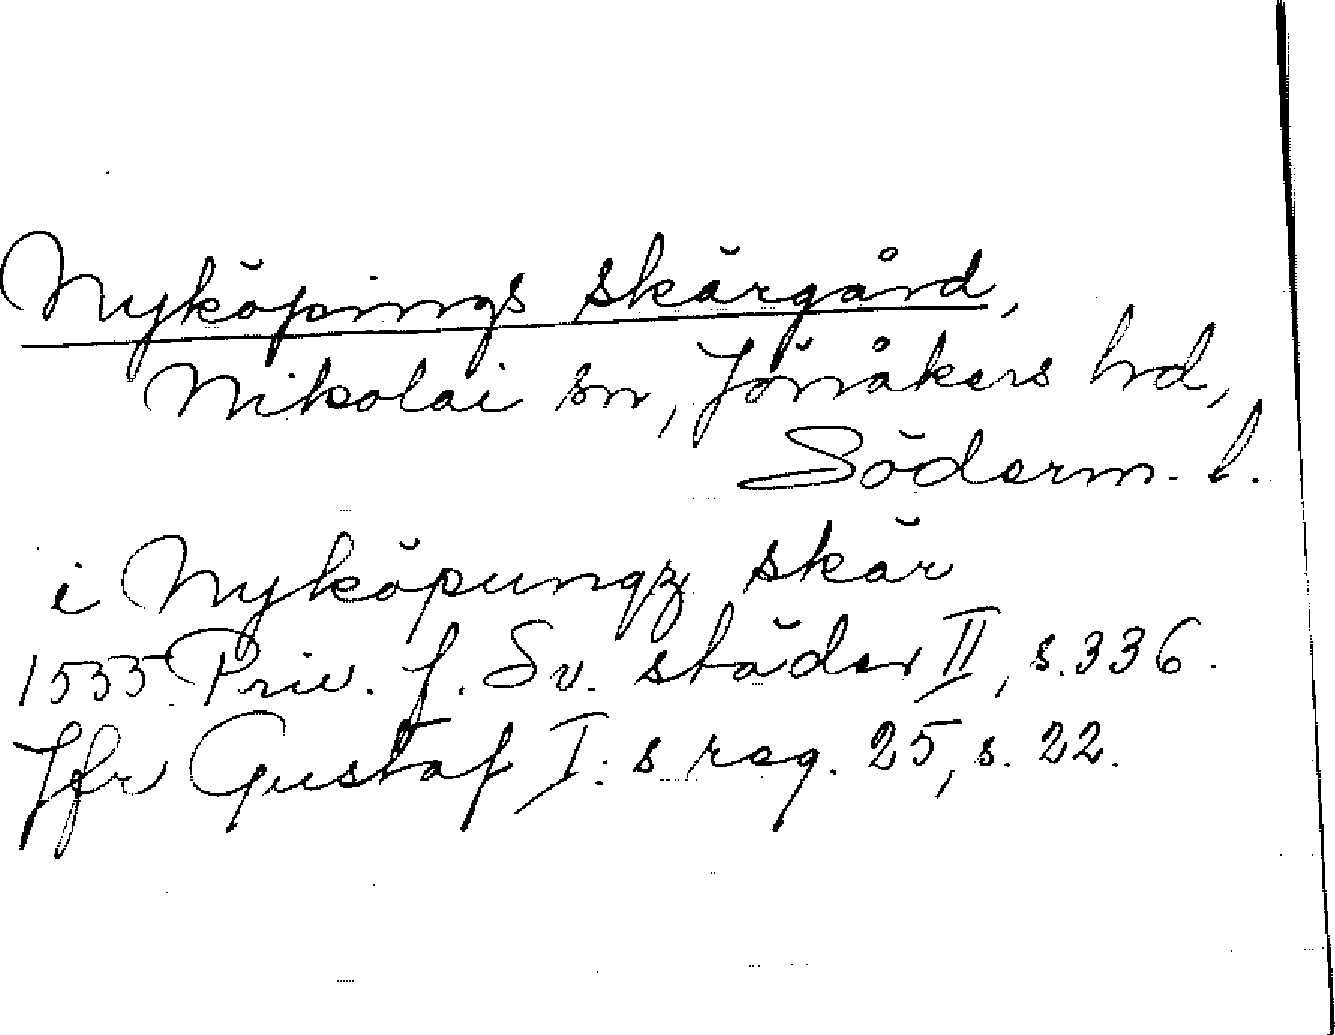 Nyköpings skärgård,
Nikolai sn, Jönåkers hd,
Söderm. l.
i Nyköpungz skär
1535 Priv. f. Sv. städer II, s. 336.
Jfr Gustaf I:s reg. 25, s. 22.